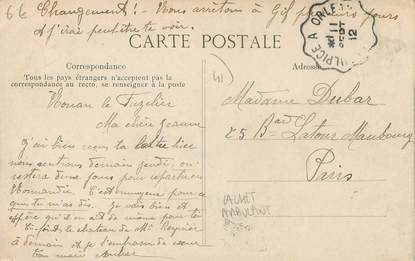 6h Changement! - Nous arrêtons à Gif plusieurs jours
J'irai peut-être te voir.
CARTE POSTALE
Correspondance
Tous les pays étrangers n'acceptent pas la
correspondance au recto, se renseigner à la poste
Adresse
A ORLEA
11
SEPT
12
Nouan le Fuzelier
Ma chère Jeanne
J'ai bien reçu ta lettre hier
nous rentrons demain jeudi, on
restera deux jours pour repartir en
Normandie. C'est ennuyeux pour ce
que tu m'as dis. Je vais bien et
espère qu'il en est de même pour toi
le chateau de Mr
à demain et je t'embrasse de cœur
Ton mari
Madame Dubar
25 Bard Latour Maubourg
Paris
CACHET
AMBULANT